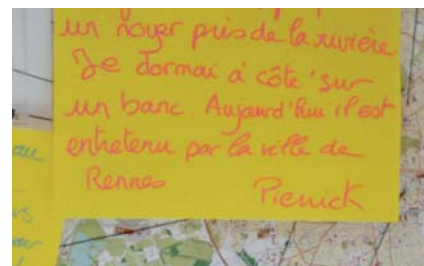 un noyer près de la rivière
Je dormai à côté sur
un banc. Aujourd'hui il est
entretenu par la ville de
Rennes Pierrick